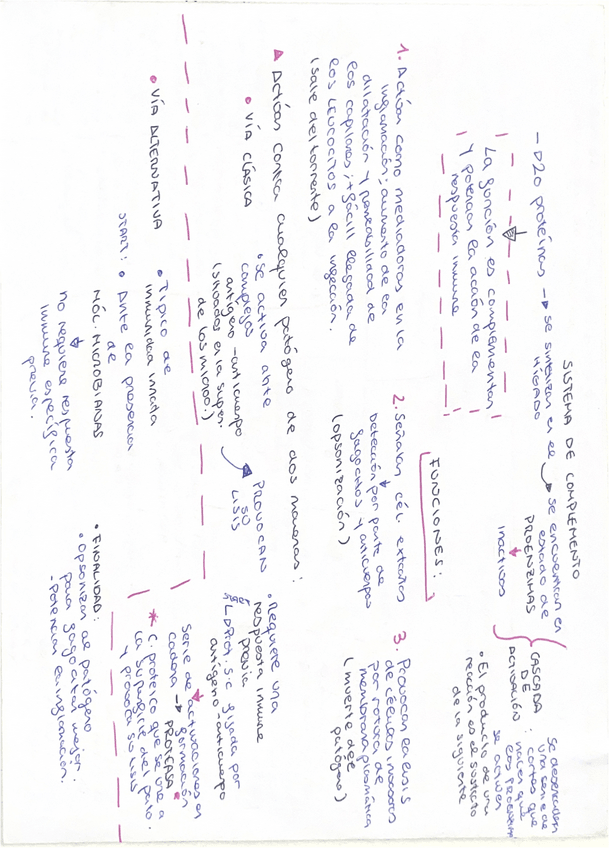 SISTEMA DE COMPLEMENTO
- D20 proteínas → se sintetizan en el
HÍGADO
se encuentran en
estado de
PROENZIMAS
inactivos
CASCADA
DE
ACTIVACIÓN:
se desencadena
una serie de
cortes que
hacen que
se activen
las proenzimas
• El producto de una
reacción es el sustrato
de la siguiente
La función es complementar
y potenciar la acción de la
respuesta inmune
FUNCIONES:
1. Actúan como mediadores en la
inflamación; aumento de la
dilatación y permeabilidad de
los capilares; + fácil llegada de
los leucocitos a la infección.
(sale del torrente)
2. Señalan cél. extrañas
Detección por parte de
fagocitos y anticuerpos
(opsonización)
3. Provocan la lisis
de células invasoras
por rotura de
membrana plasmática
(muerte del
patógeno)
▲ Actúan contra cualquier patógeno de dos maneras:
• VÍA CLÁSICA
• se activa ante
complejos
antígeno-anticuerpo
(situados en la super.
de los micro.)
PROVOCAN
SU
LISIS
• Requiere una
respuesta inmune
previa
Prot. s.c fijada por
antígeno-anticuerpo
serie de activaciones en
cadena → formación
PROTEASA
* C. proteico que se une a
la superficie del pato.
y provoca su lisis
• VÍA ALTERNATIVA
• Típico de
inmunidad innata
START: • Ante la presencia
de
MÓL. MICROBIANAS
no requiere respuesta
inmune específica
previa.
• FINALIDAD:
• Opsonizar al patógeno
para fagocitar mejor.
- Potenciar la inflamación.